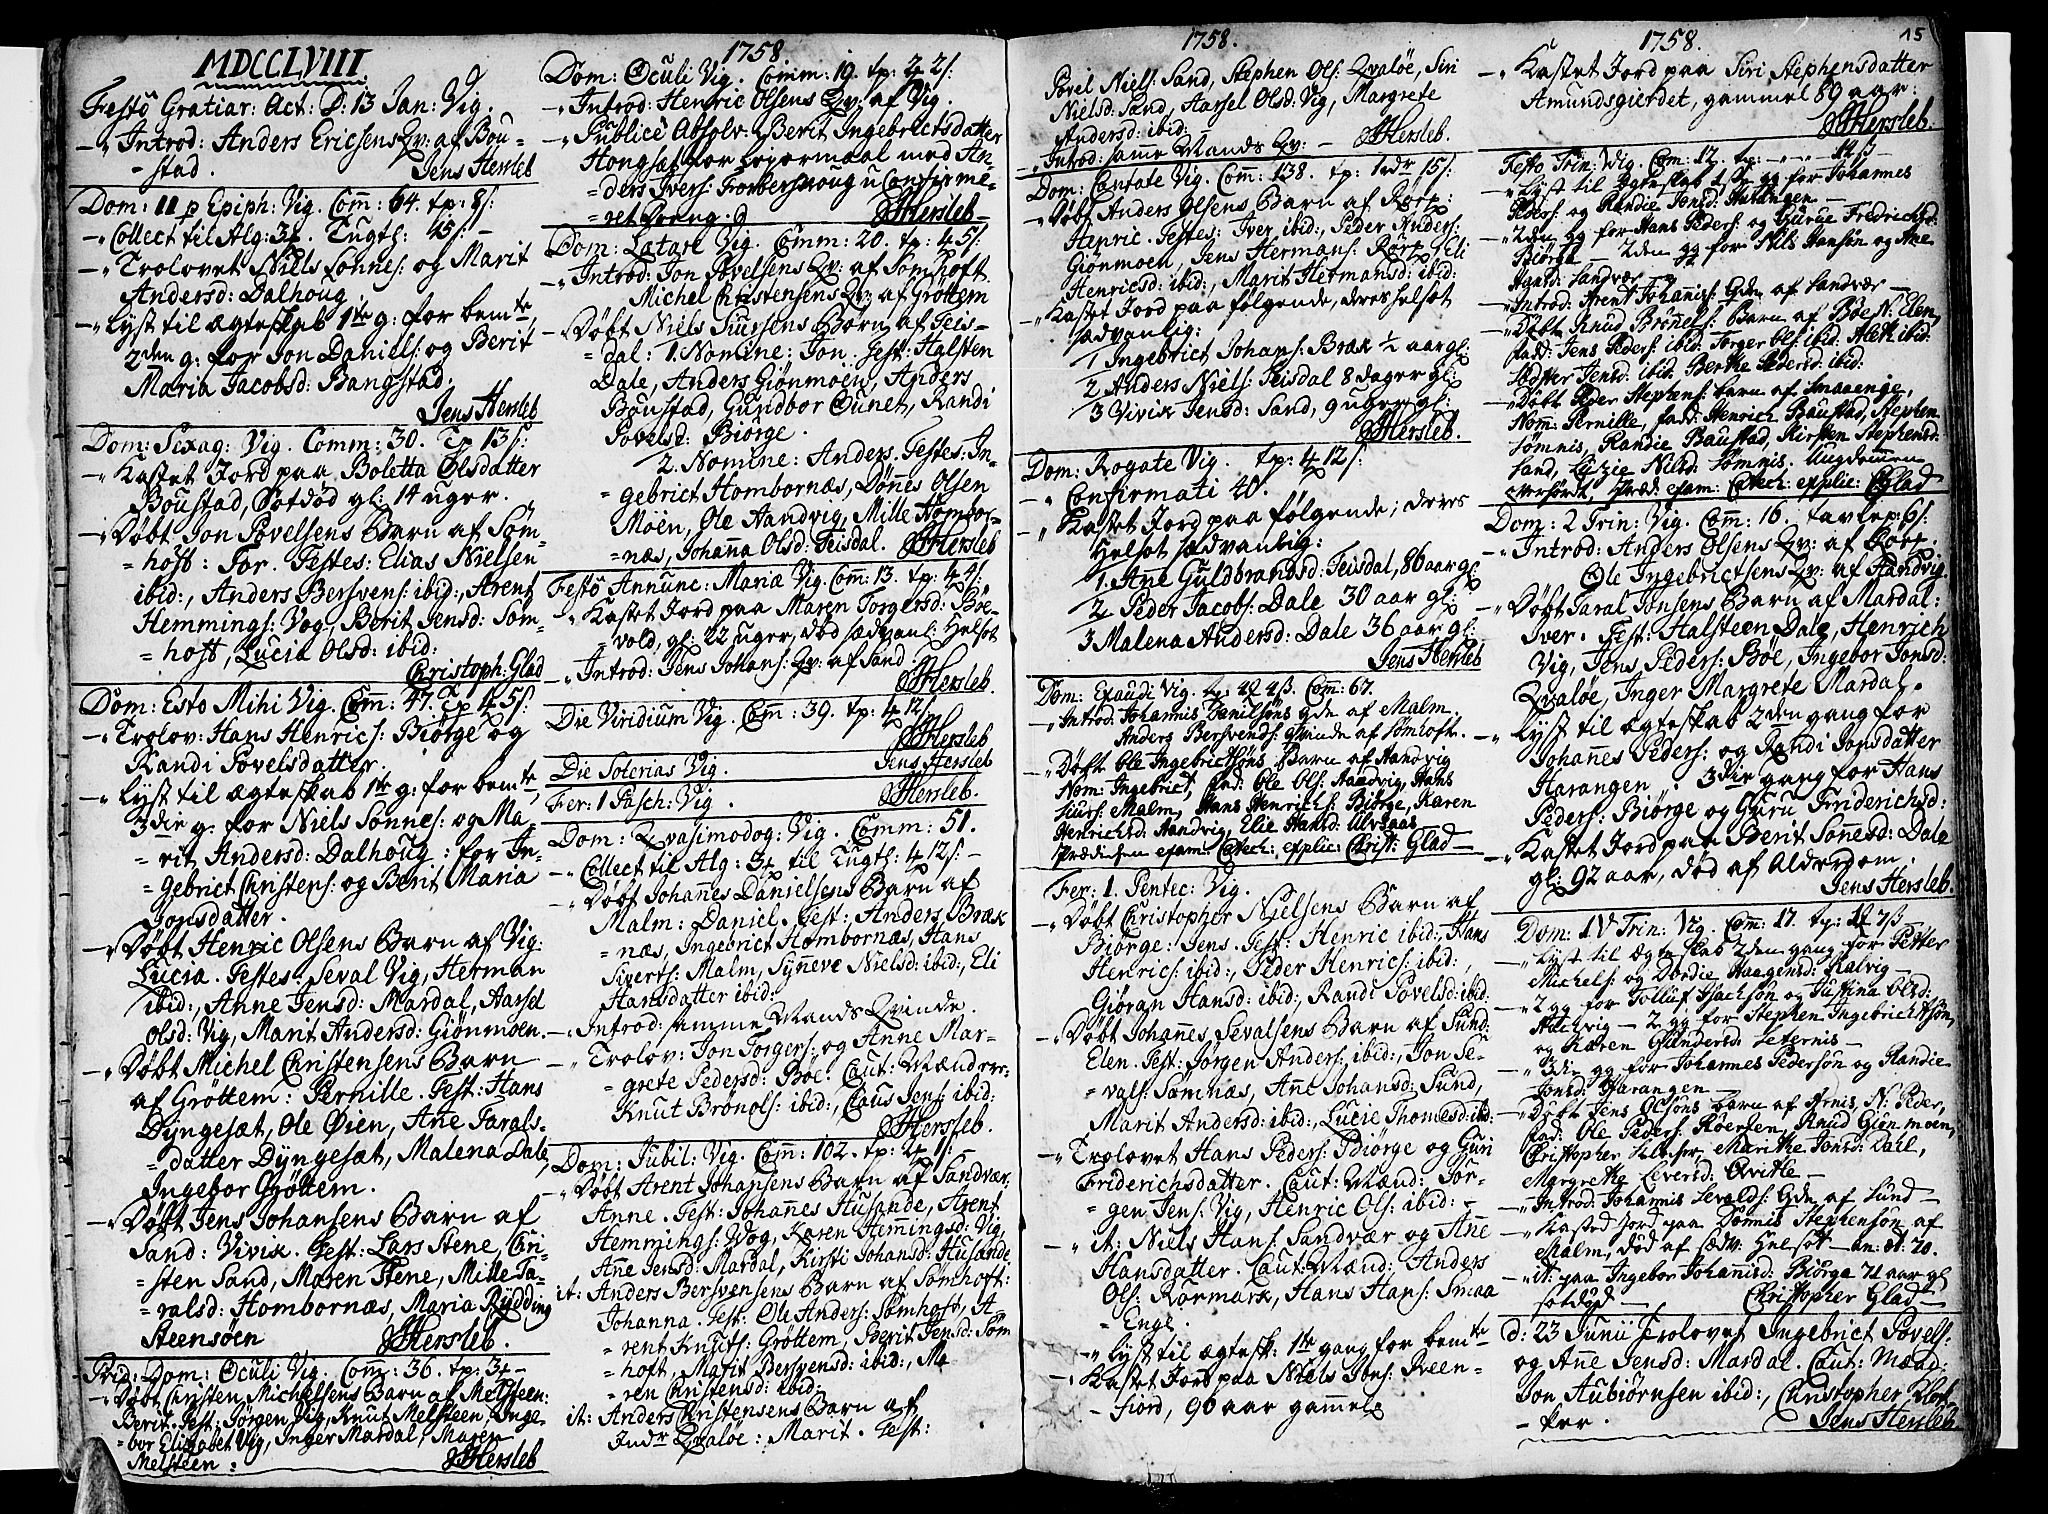 MDCCLVIII.
Festô Gratiar: Act: D: 13 Jan: Vig.
-„ Introd: Anders Ericsens Qv: af Bou-
-stad. Jens Hersleb
Dom: II p Epiph: Vig. Com̄: 64. tp: 8/:
-„ Collect til Alg: 3 Tugth: 45/: -
-„ Trolovet Niels Sonnes: og Marit
Andersd: Dalhoug
-„ Lyst til ægteskab 1te g: for bemte,
2den g: for Jon Daniels: og Berit
Maria Jacobsd: Bangstad.
Jens Hersleb
Dom: Sexag: Vig. Comm: 30. Tp 13/:
-„ Kastet Jord paa Boletta Olsdatter
Boustad, Sotdød gl: 14 uger.
-„ Døbt Jon Povelsens Barn af Søm-
=hoft: For. Testes: Elias Nielsen
ibid:, Anders Bersvens: ibid:, Arent
Hemmings: Vog, Berit Jensd: Søm-
=hoft, Lucia Olsd: ibid:
Christoph: Glad
Dom: Esto Mihi Vig. Com̄: 47. Tp 4 5/:
-„ Trolov: Hans Henrics: Biørge og
Randi Povelsdatter.
-„ Lyst til ægteskab 1te g: for bemte,
3die g: for Niels Sonnes: og Ma-
=rit Andersd: Dalhoug: for In-
=gebrict Christens: og Berit Maria
Jonsdatter.
-„ Døbt Henric Olsens Barn af Vig:
Lucia. Testes: Seval Vig, Herman
ibid:, Anne Jensd: Mardal, Aarsel
Olsd: Vig, Marit Andersd: Giønmoen.
-„ Døbt Michel Christensens Barn
af Grøttem: Pernille. Test: Hans
Dyngesæt, Ole Øien, Ane Tarals-
=datter Dyngesæt, Malena Dale,
Ingebor Grøttem.
-„ Døbt Jens Johansens Barn af
Sand: Vivik. Test: Lars Stene, Chri-
=sten Sand, Maren Stene, Mille Ta-
=ralsd: Hombornæs, Maria Rydding
Steensøen JHersleb.
Frid: Dom: Oculi Vig. Com̄: 36. tp: 3
-„ Døbt Christen Michelsens Barn af Melsteen:
Berit. Test: Jørgen Vig, Knut Melsteen, Inge-
=bor Elisabet Vig, Inger Mardal, Maren
Melsteen: JHersleb
1758
Dom: Oculi Vig. Comm: 19. tp: 4 2/:
-„ Introd: Henric Olsens Qv: af Vig.
-„ Publicè Absolv. Berit Ingebrictsdatter
Hongsæt for Leyermaal med An-
=ders Ivers: Forbershoug u Confirme-
=ret Dreng. JHersleb
Dom: Lætare Vig. Comm: 20. tp: 4 5/:
-„ Introd: Jon Povelsens Qv: af Sømhoft
Michel Christensens Qv: af Grøttem
-„ Døbt Niels Siursens Børn af Feis-
=dal: 1. Nomine: Jon. Test: Halsten
Dale, Anders Giønmoen, Anders
Boustad, Gundbor Ounet, Randi
Povelsd: Biørge.
2. Nomine: Anders. Testes: In-
=gebrict Hombornæs, Dønes Olsen
Moen, Ole Aandvig, Mille Hombor-
=næs, Johanna Olsd: Feisdal. JHersleb
Festô Annunc: Mariæ Vig. Com̄: 13. tp: 4 4/:
„ Kastet Jord paa Maren Torgersd: Bøe-
vold, gl: 22 uger, død sædvanl: Helsot
-„ Introd: Jens Johans: Qv: af Sand
JHersleb.
Die Viridium Vig. Com̄: 39. tp: 4 12/:
JHersleb
Die Soterias Vig. Jens Hersleb
Fer: 1 Pasch: Vig. JHersleb.
Dom: Qvasimodog: Vig. Comm: 51.
-„ Collect til Alg: 3 til Tugth: 4 12/: -
-„ Døbt Johanes Danielsens Barn af
Malm: Daniel. Test: Anders Bræk
=næs, Ingebrict Hombornæs, Hans
Siverts: Malm, Syneve Nielsd: ibid:, Eli
Hansdatter ibid:
-„ Introd: samme Mands Qvinde.
-„ Trolov: Jon Torgers: og Anne Mar-
=grete Pedersd: Bøe. Caut: Mænd ere:
Knut Brønols: ibid:, Claus Jens: ibid:
JHersleb.
Dom: Jubil: Vig. Com̄: 102. tp: 4 1/: -
-„ Døbt Arent Johansens Barn af Sandvær,
Anne. Test: Johannes Husande, Arent
Hemmings: Vog, Karen Hemmingsd: Vig,
Ane Jensd: Mardal, Kirsti Johansd: Husande.
it: Anders Bersvensens Barn af Sømhoft:
Johanna. Test: Ole Anders: Sømhoft, A-
rent Knuts: Grøttem, Berit Jensd: Søm
=hoft, Marit Bersvensd: ibid:, Ma
=ren Christensd: ibid:
it: Anders Christensens Barn af
Indr Qvaløe: Marit. Test:
1758.
Povel Niels: Sand, Stephen Ols: Qvaløe, Siri
Nielsd: Sand, Aarsel Olsd: Vig, Margrete
Andersd: ibid:
-„ Introd: samme Mands Qv: - JHersleb.
Dom: Cantate Vig. Comm: 138. tp: 1rdr 15/:
-„ Døbt Anders Olsens Barn af Rørp:
Henric. Testes: Iver ibid:, Peder Anders:
Giønmoen, Jens Hermans: Rørp, Eli
Henricsd: ibid:, Marit Hermansd: ibid:
„ Kastet Jord paa følgende, deres Helsot
sædvanlig:
1 Ingebrict Johans: Bræk ½ aar gl:
2 Anders Niels: Feisdal 8 dager gl:
3 Vivik Jensd: Sand, 9 uger gl:
JHersleb.
Dom: Rogate Vig. tp: 4 12/:
-„ Confirmati 40.
-„ Kastet Jord paa følgende; deres
Helsot sædvanlig:
1. Ane Guldbrandsd: Feisdal, 86 aar gl:
2. Peder Jacobs: Dale 30 aar gl:
3 Malena Andersd: Dale 36 aar gl:
Jens Hersleb
Dom: Exaudi Vig. tp: 4 4ß. Com̄: 67.
-„ Introd: Johannis Danilsøns Qde af Malm.
Anders Bersvends: Qvinde af Sømhoft. -
-„ Døbt Ole Ingebrictsøns Barn af Aandvig
Nom: Ingebrict, fad: Ole Ols: Aandvig, Hans
Siurs: Malm, Hans Henrichs: Biørge, Karen
Henrichsd: Aandvig, Elie Hansd: Ulvsaas
Prædichen exam: Catech: explic: Christ: Glad -
Fer: 1. Pentec: Vig.
-„ Døbt Christopher Nielsens Barn af
Biørge: Jens. Test: Henric ibid:, Hans
Henrics: ibid:, Peder Henrics: ibid:,
Giøran Hansd: ibid:, Randi Povelsd: ibid.
-„ Døbt Johanes Sevalsens Barn af Sund:
Elen. Test: Jørgen Anders: ibid:, Jon Se-
=vals: Sømnæs, Ane Johansd: Sund,
Marit Andersd: ibid:, Lucie Thomesd: ibid:
-„ Trolovet Hans Peders: Biørge og Guri
Friderichsdatter. Caut: Mænd: Jør-
=gen Jens: Vig, Henric Ols: ibid: -
-„ it: Niels Hans: Sandvær og Ane
Hansdatter. Caut: Mænd: Anders
Ols: Rørmark, Hans Hans: Smaa
= Enge.
-„ Lyst til ægtesk: 1te gang for bemte
-„ Kastet Jord paa Niels Jons: Sveen-
- fiord, 90 aar gammel
1758. 15
-„ Kastet Jord paa Siri Stephensdatter
Amundsgierdet, gammel 89 aar:
JHersleb.
Festo Trin: Vig. Com: 12. tp: - - - 14ß -
-„ Lyst til Ægteskab 1ste gg for Johannes
Peders: og Randie Jonsd: Harangen -
-„ 2den gg for Hans Peders: og Gurue Fredrichsd:
Biørge - 2den gg for Nils Hansøn og Ane
Hansd: Sandvær -
-„ Introd: Arent Johannis: Qde af Sandvær -
-„ Døbt Knud Brønels: Barn af Bøe N: Elen,
fadd: Jens Peders: ibid: Torger Ols: ibid: Aleth ibid:
Sødster Jensd: ibid: Berthe Pedersd: ibid:
-„ Døbt Peder Stephens: barn af Smaaenge,
Nom: Pernille, fadd: Henrich Baustad, Stephen
Sømnis, Randie Baustad, Kirsten Stephensd:
Sand, Lizie Nilsd: Sømnis. Ungdommen
overhørt, Præd: exam: Catech: explic: CGlad
Dom: 2 Trin: Vig. Com̄: 16. tavlep: 6/:
-„ Introd: Anders Olsens Qv: af Rørp.
Ole Ingebrictsens Qv: af Handvig.
-„ Døbt Taral Jonsens Barn af Mardal:
Iver. Test: Halsteen Dale, Henrich
Vig, Jens Peders: Bøe, Ingebor Jonsd:
Qvaløe, Inger Margrete Mardal.
-„ Lyst til ægteskab 2den gang for
Johannes Peders: og Randi Jonsdatter
Harangen. 3die gang for Hans
Peders: Biørge og Guru Friderichsd:
-„ Kastet Jord paa Berit Sønnesd: Dale
gl: 92 aar, død af Alderdom.
Jens Hersleb.
Dom: IV Trin: Vig: Com̄: 17. tp: 1 7ß
-„ Lyst til ægteskab 2den gang for Petter
Michels: og Dordie Haagensd: Kalvig -
-„ 2 gg for Tolluf Isachsøn og Justina Olsd:
Aachvig - 2 gg for Stephen Ingebrichtsøn,
og Karen Gundersd: Leternis -
-„ 3die gg for Johannes Pedersøn og Randie
Jonsd: Harangen -
-„ Døbt Jens Olsøns barn af Årnis, N: Peder,
fad: Ole Peders: Roersen, Knud Gienmoen,
Christopher Marithe Jonsd: Dall,
Margrethe Leversd: Qvitle -
-„ Introd: Johannis Sevalds: Qde af Sund -
-„ Kasted Jord paa Dønnis Stephensøn af
Malm, død af sædv: Helsot - an: æt 70.
-„ it: paa Ingebor Johannisd: Biørga 71 aar gl
sotdød - Christopher Glad -
d: 23 Junii Trolovet Ingebrict Povels:
og Ane Jensd: Mardal. Caut: Mænd:
Jon Aubiørnsen ibid:, Christopher Klok-
- ker. Jens Hersleb